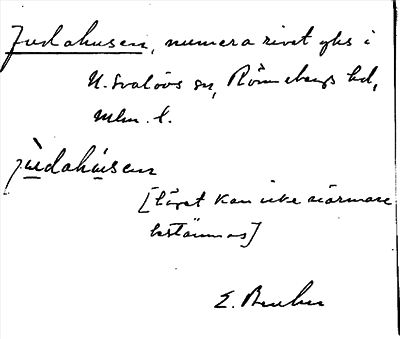 Judahusen, numera rivet ghs i
N. Svalövs sn, Rönnebergs hd,
Mlm. l.
jùdahúsen
[Läget kan icke närmare
bestämmas]
E. Bruhn